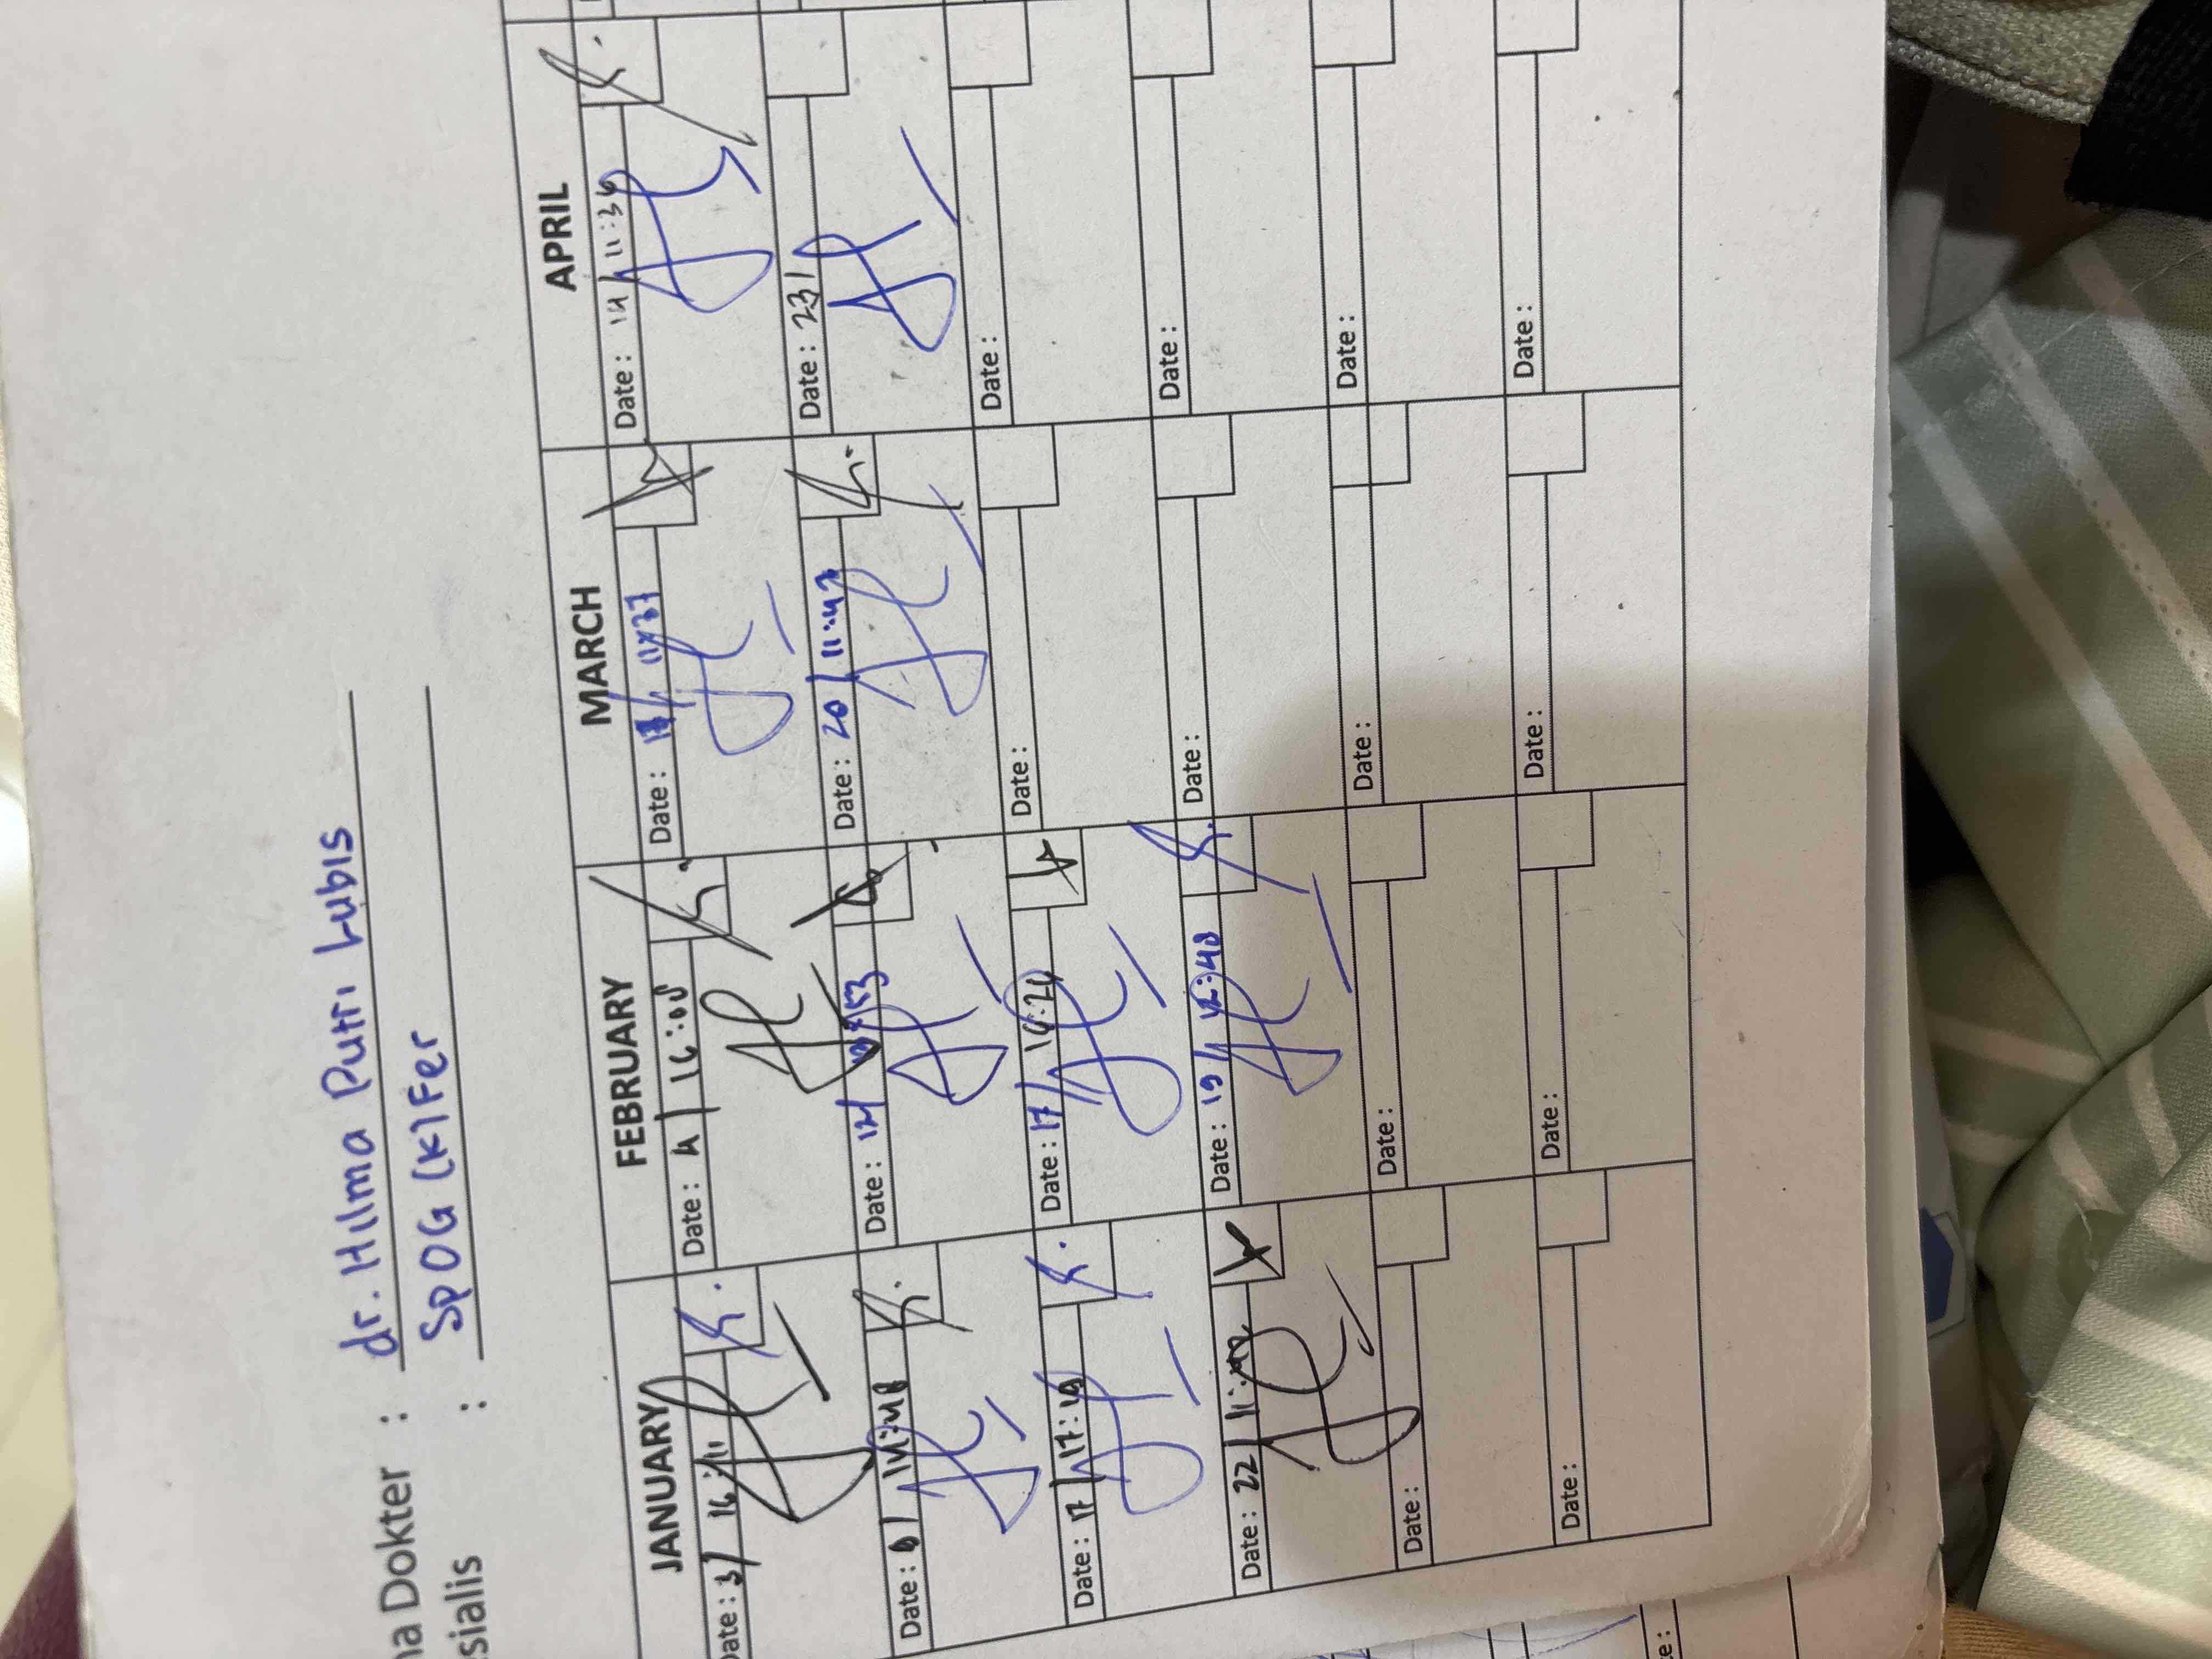 ma Dokter : dr. Hilma Putri Lubis
sialis : SpOG (K) Fer
JANUARY FEBRUARY MARCH APRIL
Date : 3/ 16:11 Date : 4/ 16:00 Date : Date : 14/ 11:36
Date : Date : 12/ Date : 20/ 11:42 Date : 23/
Date : 17/ 17:19 Date : 17/ 16:21 Date : Date :
Date : 22/ Date : 19/ 12:48 Date : Date :
Date : Date : Date : Date :
Date : Date : Date : Date :